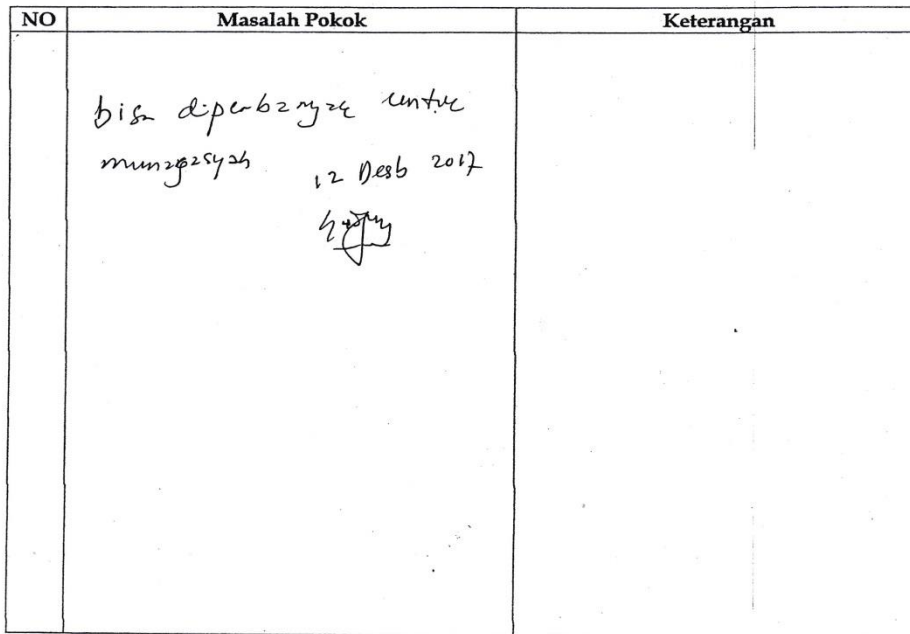 NO Masalah Pokok Keterangan
bisa diperbanyak untuk
munaqasyah
12 Desb 2017